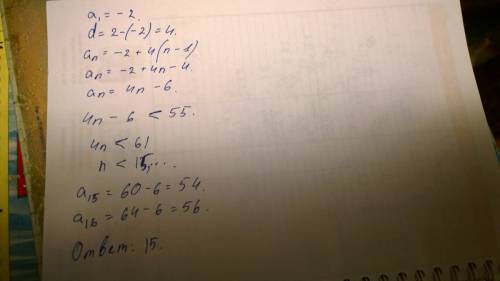 a₁ = -2.
d = 2-(-2) = 4.
aₙ = -2 + 4(n-1)
aₙ = -2 + 4n - 4.
aₙ = 4n - 6.
4n - 6 < 55.
4n < 61
n < 15,...
a₁₅ = 60-6 = 54.
a₁₆ = 64-6 = 56.
Ответ: 15.